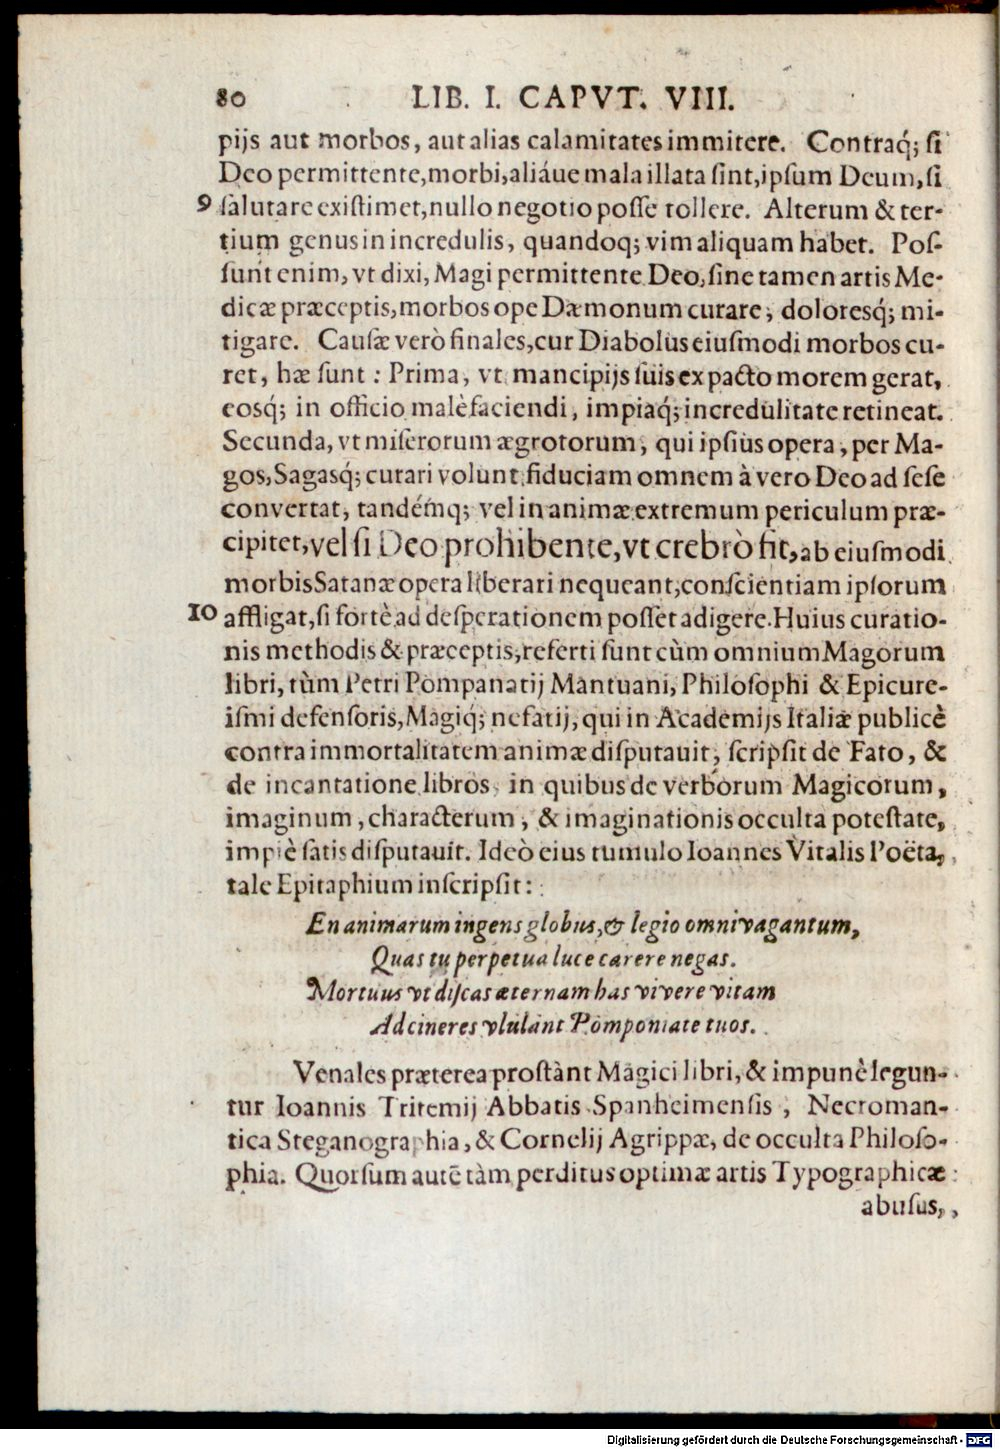 80 LIB. I. CAPVT. VIII.
pijs aut morbos, aut alias calamitates immitere. Contraq́; ſi
Deo permittente, morbi, aliáue mala illata ſint, ipſum Deum, ſi
9 ſalutare exiſtimet, nullo negotio poſſe tollere. Alterum & ter-
tium genus in incredulis, quandoq; vim aliquam habet. Poſ-
ſunt enim, vt dixi, Magi permittente Deo, ſine tamen artis Me-
dicæ præceptis, morbos ope Dæmonum curare, doloresq́; mi-
tigare. Cauſæ verò finales, cur Diabolus eiuſmodi morbos cu-
ret, hæ ſunt: Prima, vt mancipijs ſuis ex pacto morem gerat,
eosq́; in officio malèfaciendi, impiaq́; incredulitate retineat.
Secunda, vt miſerorum ægrotorum, qui ipſius opera, per Ma-
gos, Sagasq́; curari volunt fiduciam omnem à vero Deo ad ſeſe
convertat, tandéḿq; vel in animæ extremum periculum præ-
cipitet, vel ſi Deo prohibente, vt crebrò fit, ab eiuſmodi
morbis Satanæ opera liberari nequeant, conſcientiam ipſorum
10 affligat, ſi fortè ad deſperationem poſſet adigere. Huius curatio-
nis methodis & præceptis, referti ſunt cùm omnium Magorum
libri, tùm Petri Pompanatij Mantuani, Philoſophi & Epicure-
iſmi defenſoris, Magiq́; nefatij, qui in Academijs Italiæ publicè
contra immortalitatem animæ diſputauit, ſcripſit de Fato, &
de incantatione libros, in quibus de verborum Magicorum,
imaginum, characterum, & imaginationis occulta poteſtate,
impiè ſatis diſputauit. Ideò eius tumulo Ioannes Vitalis Poëta,
tale Epitaphium inſcripſit:
En animarum ingens globus, & legio omnivagantum,
Quas tu perpetua luce carere negas.
Mortuus vt diſcas æternam has vivere vitam
Ad cineres vlulant Pomponiate tuos.
Venales præterea proſtànt Magici libri, & impunè legun-
tur Ioannis Tritemij Abbatis Spanheimenſis, Necroman-
tica Steganographia, & Cornelij Agrippæ, de occulta Philoſo-
phia. Quorſum autē tàm perditus optimæ artis Typographicæ
abuſus,
Digitalisierung gefördert durch die Deutsche Forschungsgemeinschaft - DFG